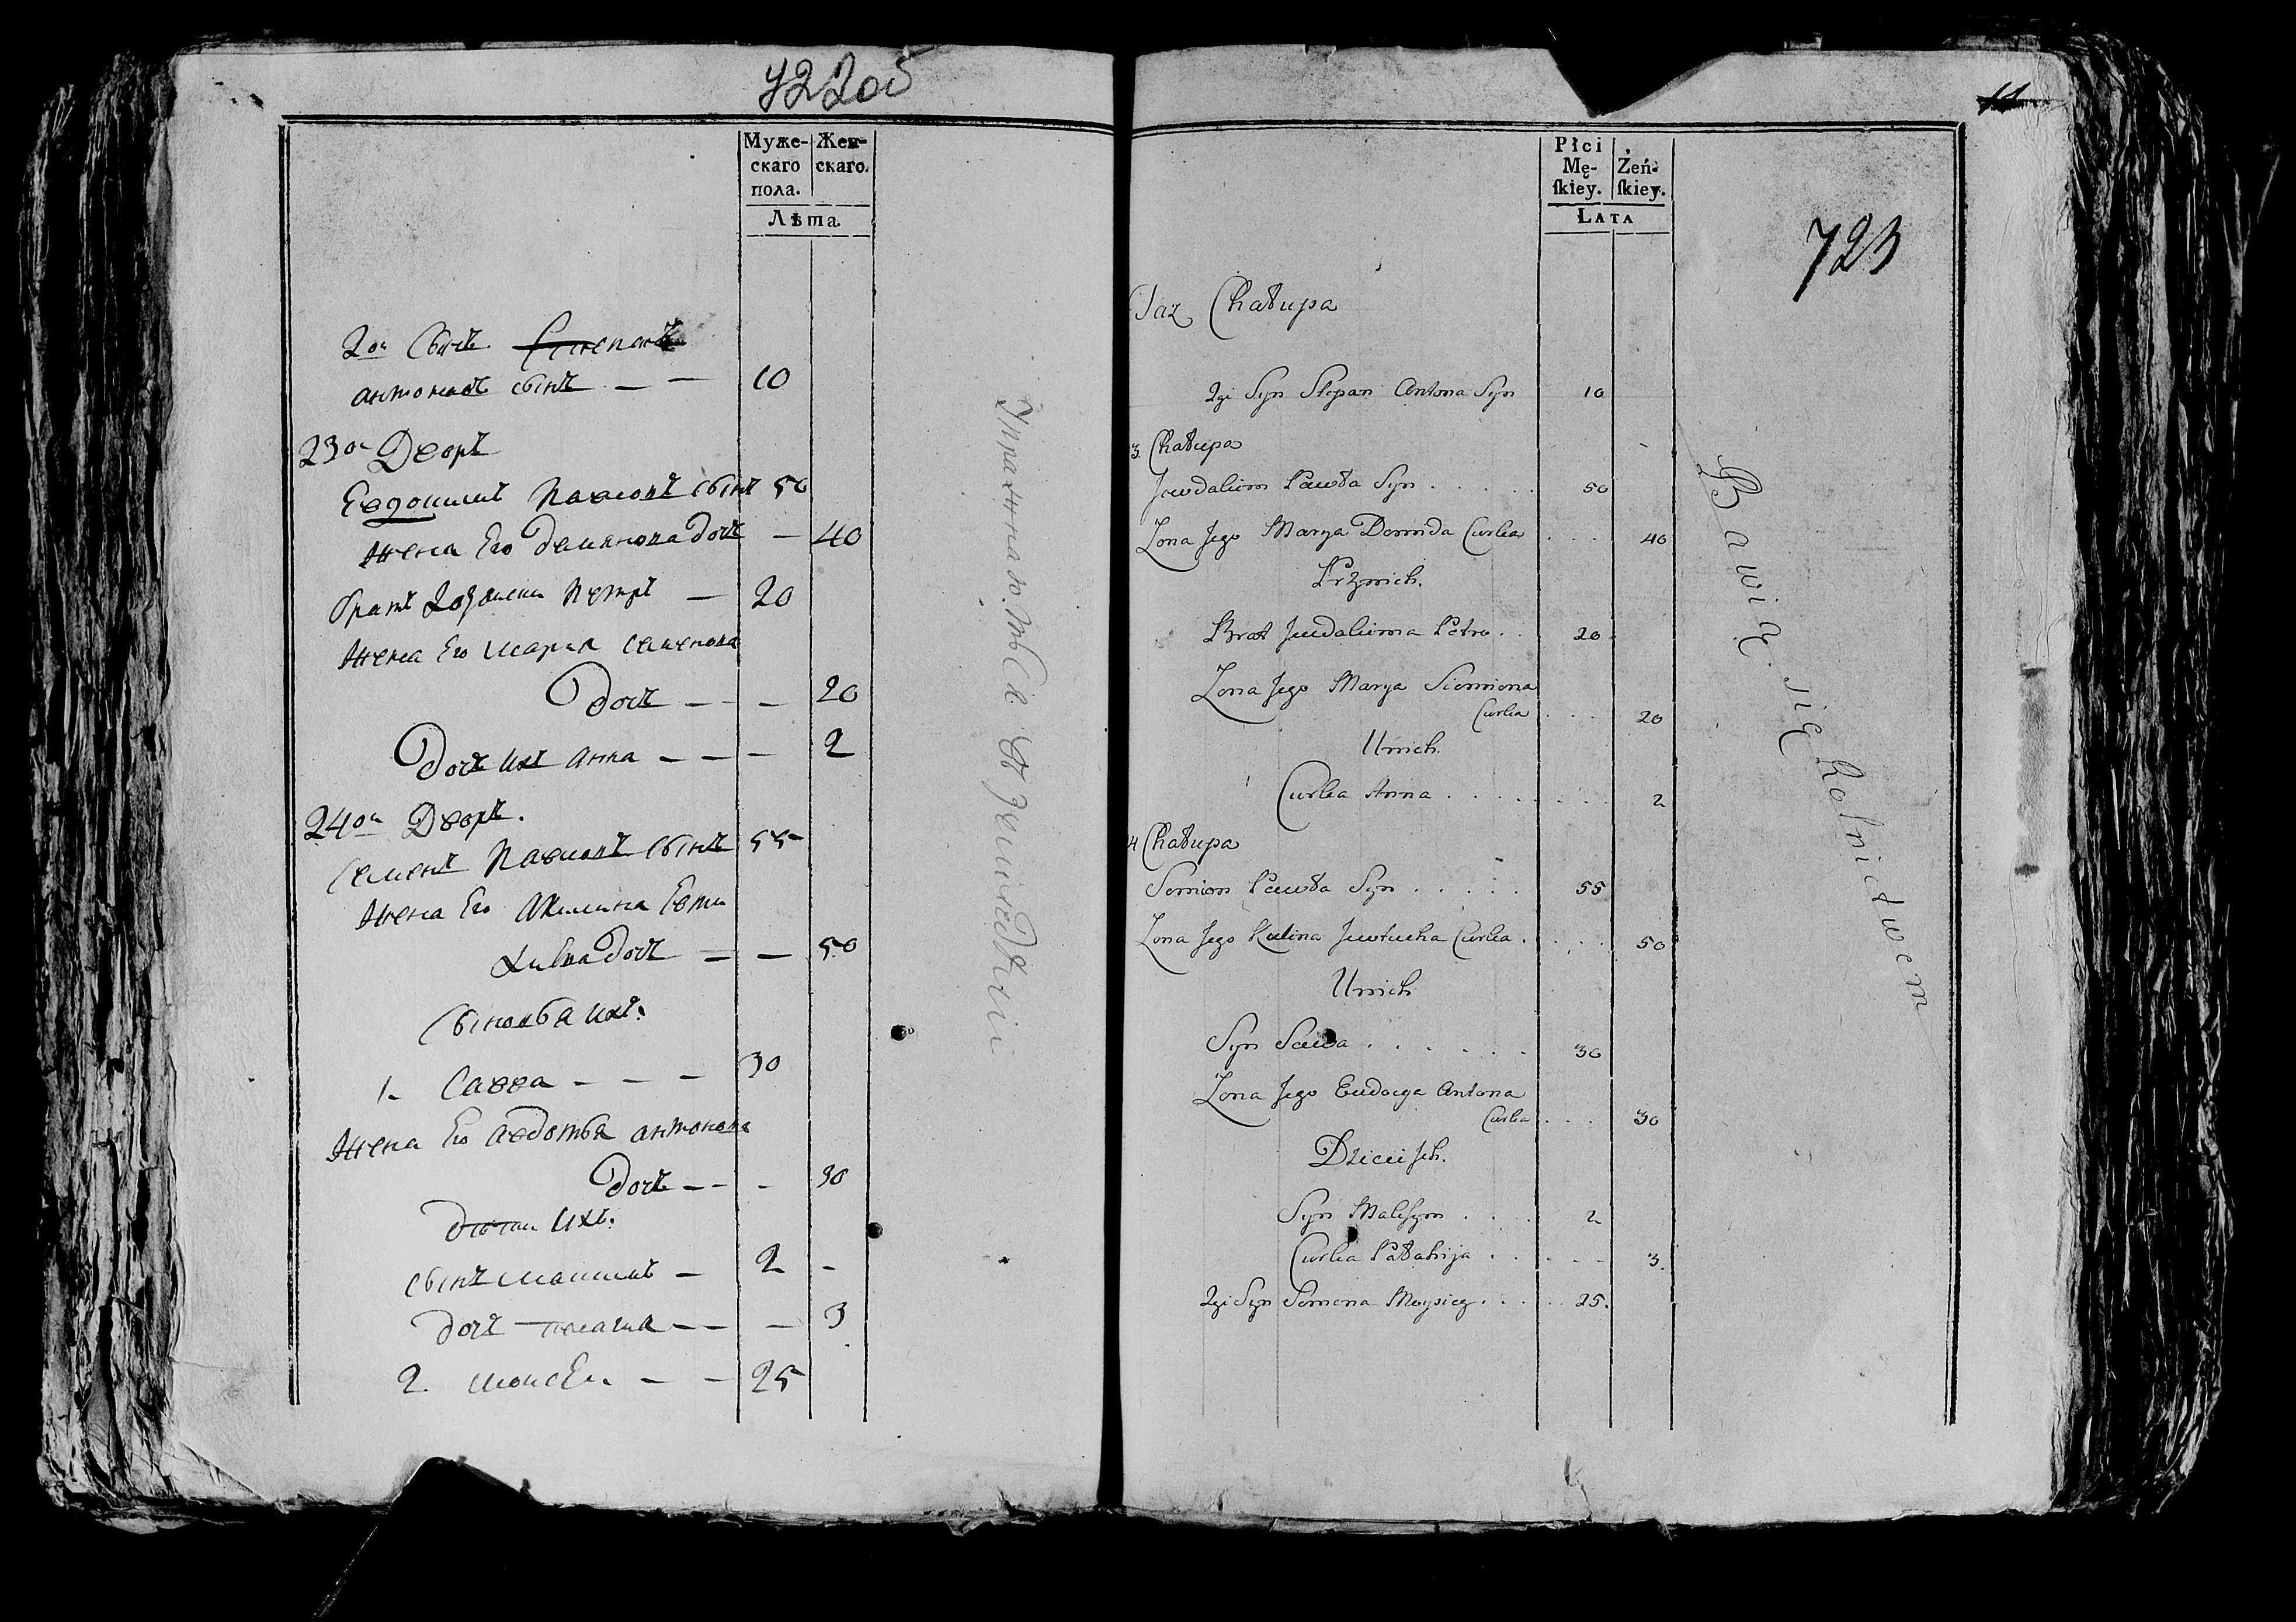 722об
Муже-
скаго
пола.
Жен-
скаго.
Лѣта.
2ой Сынъ Степанъ
антоновъ сынъ — — 10
23ой Дворъ
Евдокимъ Павловъ сынъ 50
жена Его Демянова дочь — 40
братъ Евдокима Петръ — 20
жена Его Мария Семенова
дочь — — 20
дочь ихъ Анна — — — 2
24ой Дворъ.
Семенъ Павловъ сынъ 55
жена Его Акилина Евти
хиева дочь — — 50
Сыновья ихъ.
1. Савва — — — 30
жена Его авдотья антонова
дочь — — - 30
дѣти ихъ.
сынъ Максимъ — 2 -
дочь Пелагия — — — 3
2. Моисей. — — 25
Упражняютьсѧ въ земледѣлии
11
Płci
Mę-
ſkiey.
Żeń-
ſkiey.
LATA
723
Chałupa
2gi Syn Stepan Antona Syn 10
3. Chałupa
Jewdakim Pawła Syn . . . . . 50
Zona Jego Marya Domida Curka . . . 40
Przynich.
Brat Jewdakima Petro . . 20
Zona Jego Marya Siemiona
Curka . . . 20
Unich.
Curka Anna . . . . . . . . 2
4 Chałupa
Semion Pawła Syn . . . . . 55
Zona Jego Kulina Jewtucha Curka . . . . 50
Unich
Syn Sawa . . . . . . 30
Zona Jego Eudocya Antona
Curka . . . 30
Dzieci Jch.
Syn Maksym . . . . 2
Curka Pałahija . . . . . . 3.
2gi Syn Semena Moysiey . . . . . 25.
Bawią się Rolnictwem